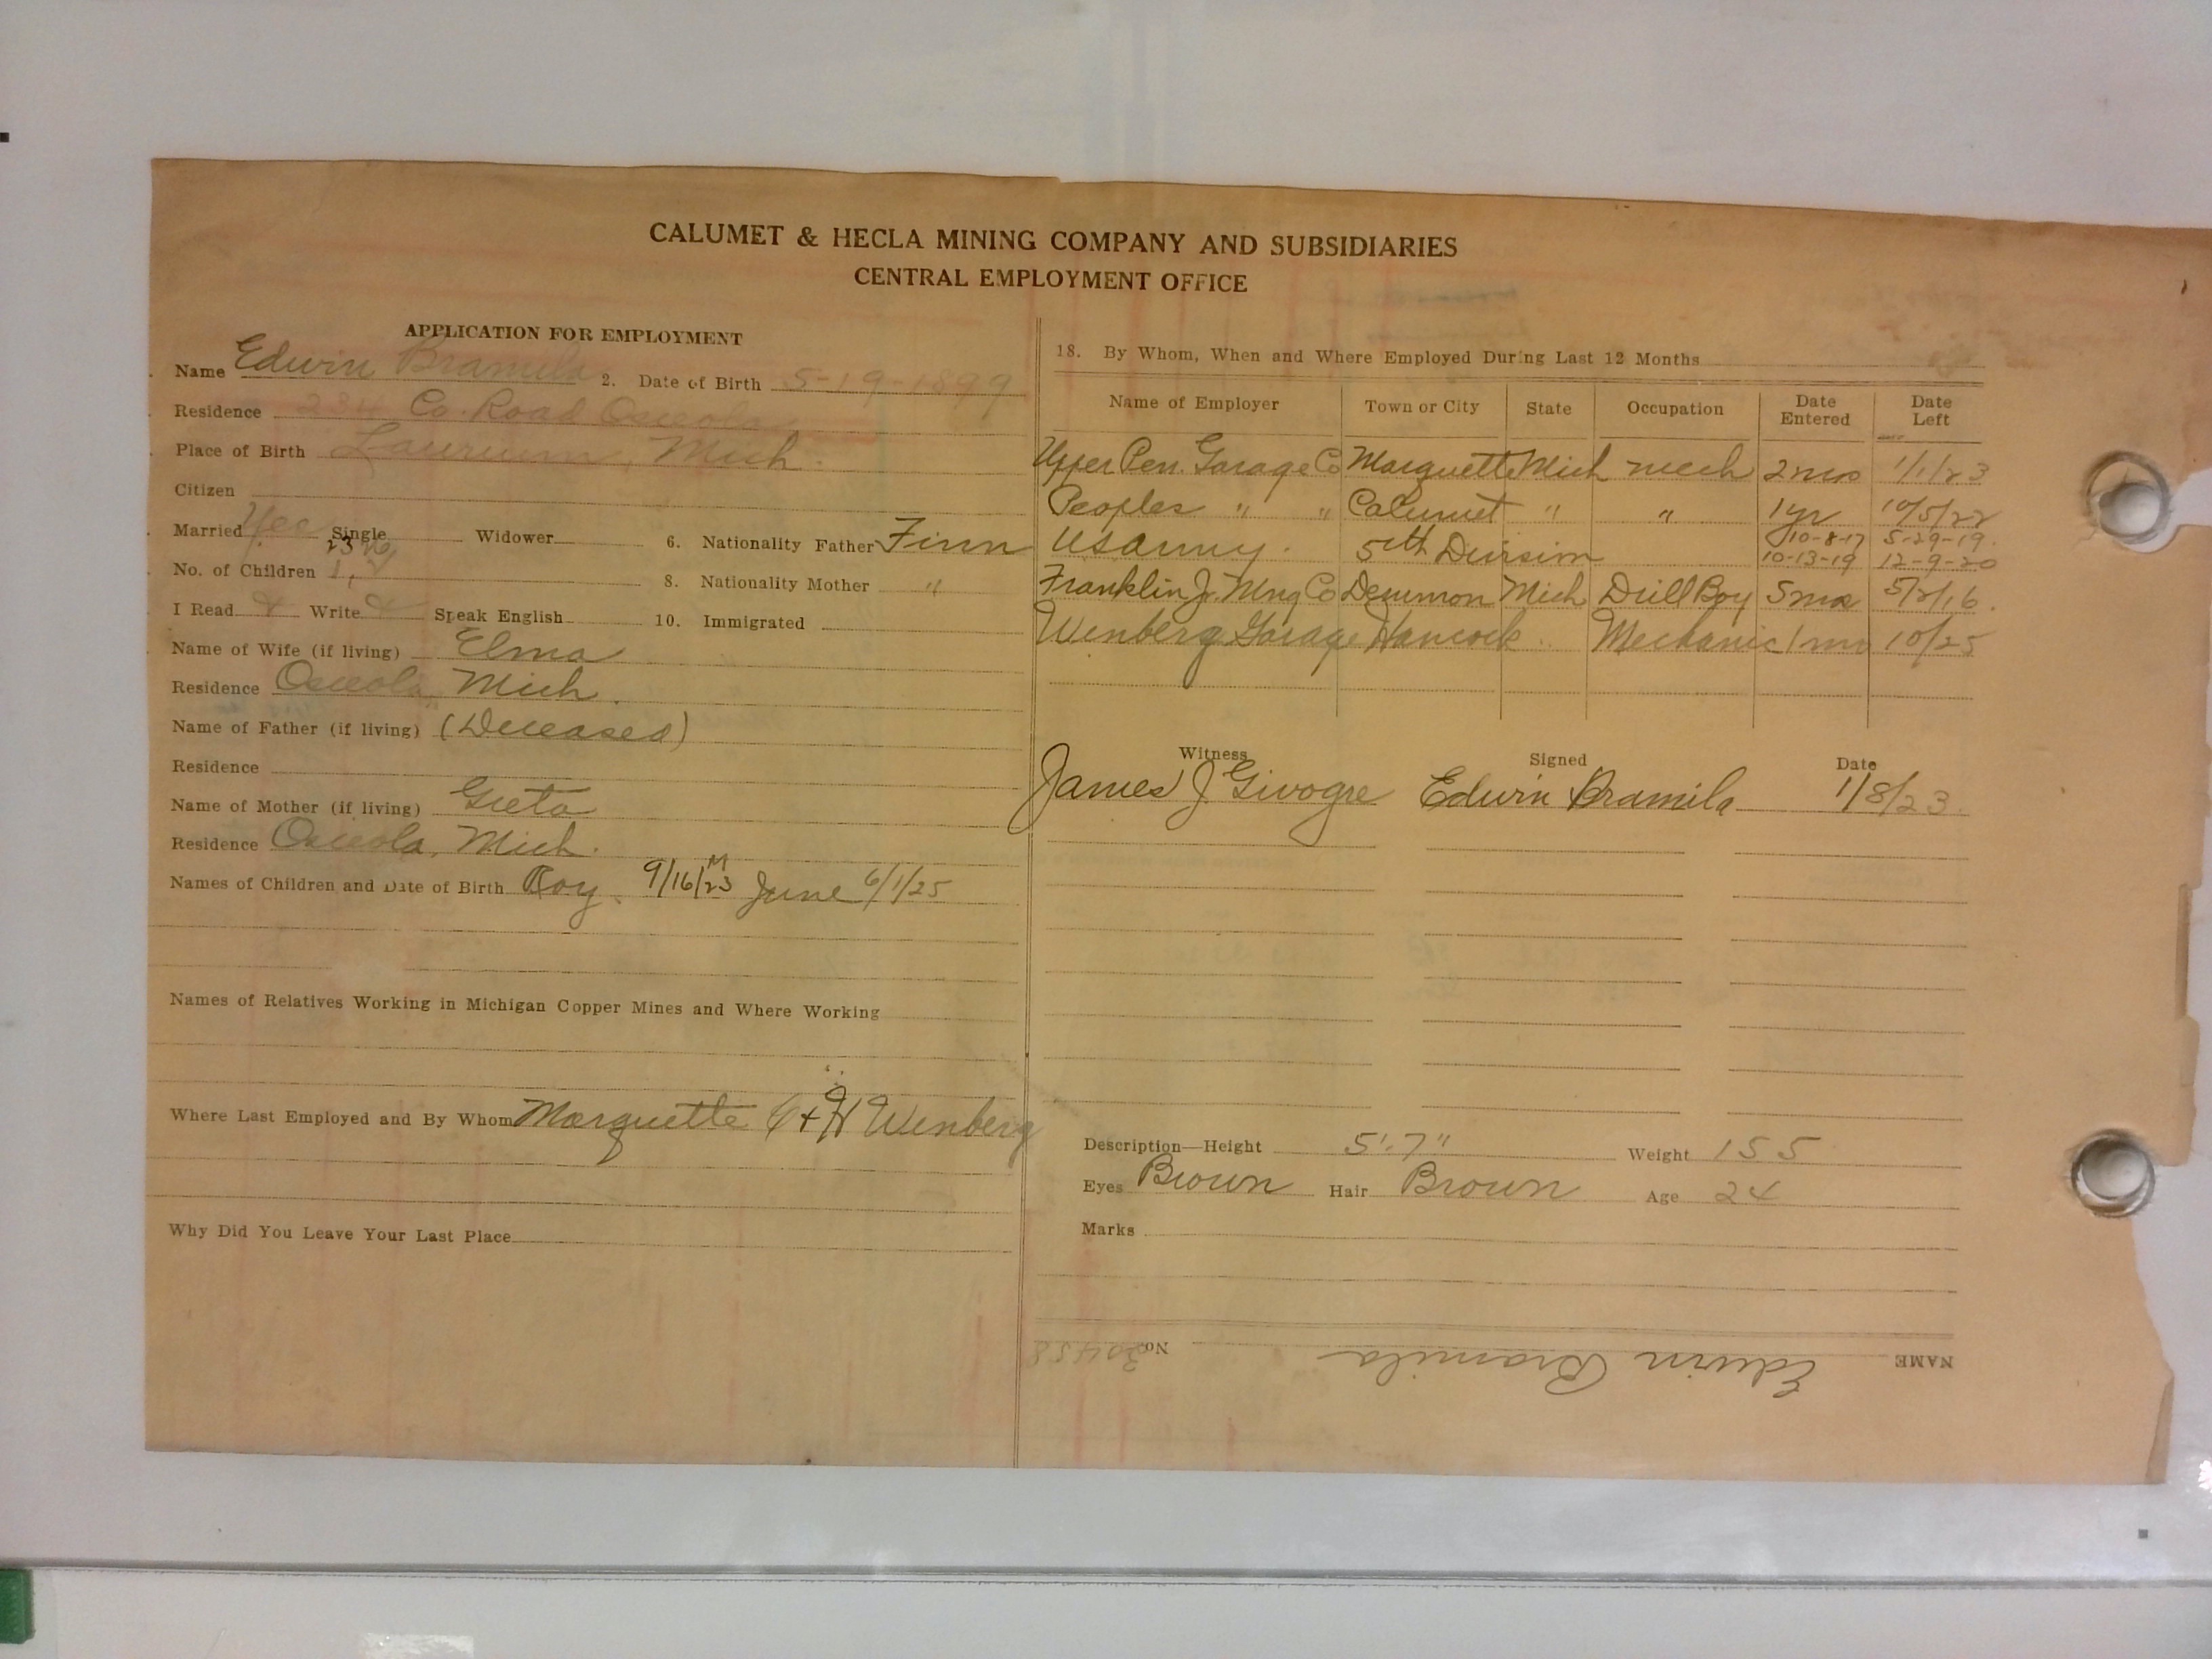 CALUMET & HECLA MINING COMPANY AND SUBSIDIARIES
CENTRAL EMPLOYMENT OFFICE
APPLICATION FOR EMPLOYMENT
Name Edwin Bramila 2. Date of Birth 5-19-1899
Residence Co. Road Osceola
Place of Birth Laurium, Mich.
Citizen
Married Yes Single Widower 6. Nationality Father Finn
No. of Children 1, 23 8. Nationality Mother "
I Read Write Speak English 10. Immigrated
Name of Wife (if living) Elma
Residence Osceola, Mich.
Name of Father (if living) (Deceased)
Residence
Name of Mother (if living) Greta
Residence Osceola, Mich.
Names of Children and Date of Birth Roy. 9/16/23 M June 6/1/25
Names of Relatives Working in Michigan Copper Mines and Where Working
Where Last Employed and By Whom Marquette C+H Wenberg
Why Did You Leave Your Last Place
18. By Whom, When and Where Employed During Last 12 Months
Name of Employer Town or City State Occupation Date Entered Date Left
Upper Pen. Garage Co Marquette Mich mech 2 mos 1/1/23
Peoples " " Calumet " " 1 yr 10/5/22
US Army. 5th Division 10-8-17 5-29-19.
10-13-19 12-9-20
Franklin Jr. Mng Co Demmon Mich Drill Boy 5 mos 5/2/16.
Wenberg Garage Hancock Mechanic 1 mo 10/25
Witness Signed Date
James J Givogre Edwin Bramila 1/8/23.
Description—Height 5'.7" Weight 155
Eyes Brown Hair Brown Age 24
Marks
NAME Edwin Bramila No. 30458